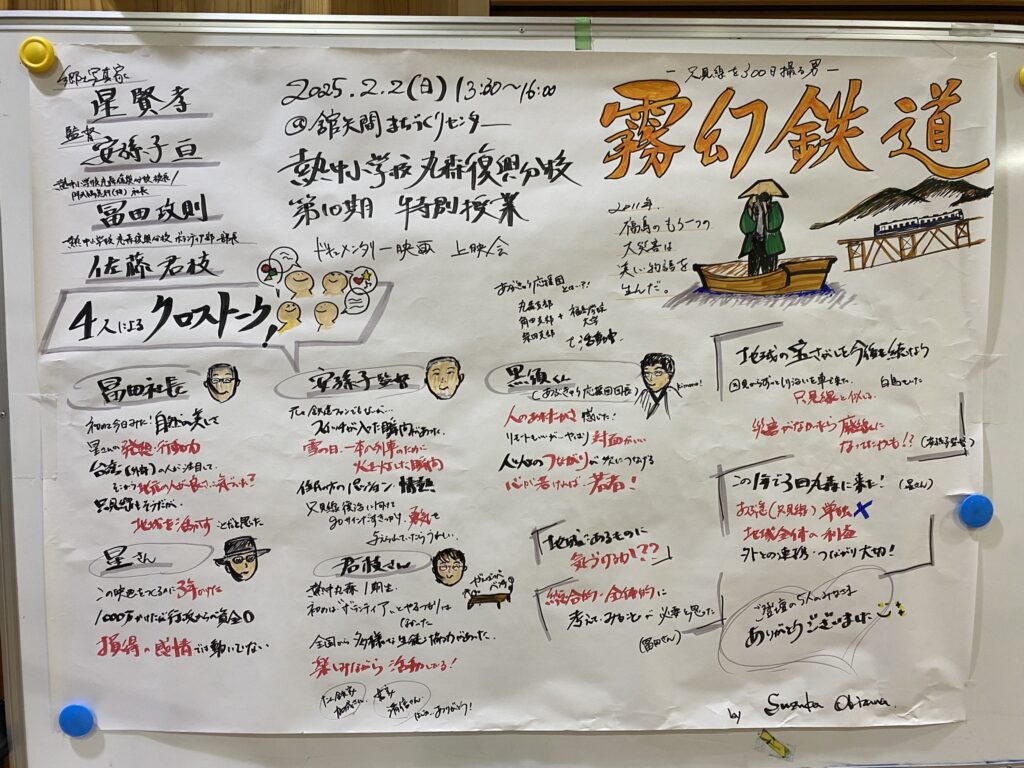 郷土写真家
星賢孝
監督
安孫子亘
熱中小学校丸森復興分校 校長/
冨田政則
熱中小学校丸森復興分校 ボランティア部 部長
佐藤君枝
2025.2.2(日)13:00〜16:00
@舘矢間まちづくりセンター
熱中小学校丸森復興分校
第10期 特別授業
ドキュメンタリー映画 上映会
4人による クロストーク!
ー只見線を300日撮る男ー
霧幻鉄道
2011年、
福島のもう一つの
大災害は
美しい物語を
生んだ。
あぶきゅう応援団
とは…?!
丸森支部
角田支部 +
柴田支部
福島学院
大学
で活動中
冨田社長
初めて今日みた!自然が美しくて
星さんの発想・行動力
台湾(外部)の人が注目して、
そこから地元の人が良さに気づいた?
只見線もそうだが、
地域を活かすことだと思った
安孫子監督
元々鉄道ファンでもないが…
スイッチが入った瞬間があった。
雪の日、一本の列車のために
火を
住民の方のパッション・情熱
只見線復活に向けて
goサインだすきっかけ、勇気を
与えられていたらうれしい。
黒須くん
(あぶきゅう応援団団長)
kimono!
人のあたたかさ 感じた!
リモートもいいが、やはり対面がいい
人と人のつながりが次につなげる
心が若ければ、若者!
地域の宝さがしを今後も続けよう
白鳥もいた
只見線と似てる。
災害がなかったら廃線に
なっていたかも!? (安孫子監督)
この1年で3回丸森に来た! (星さん)
あぶ急(只見線)単独✗
地域全体への利益
外との連携・つながり大切!
星さん
この映画をつくるのに3年かけた
1000万かけたが行政からの資金0
損得の感情では動いていない
君枝さん
熱中丸森1期生
初めは“ボランティア”とやるつもりは
なかった
全国から多様な生徒と協力があった。
楽しみながら活動してる!
ありがとう!
地域にあるものに
気づくのか!??
総合的・全体的に
考えてみることが必要と思った
(冨田さん)
ご登壇の5人のみなさま
ありがとうございました
by Suzuka Obinna